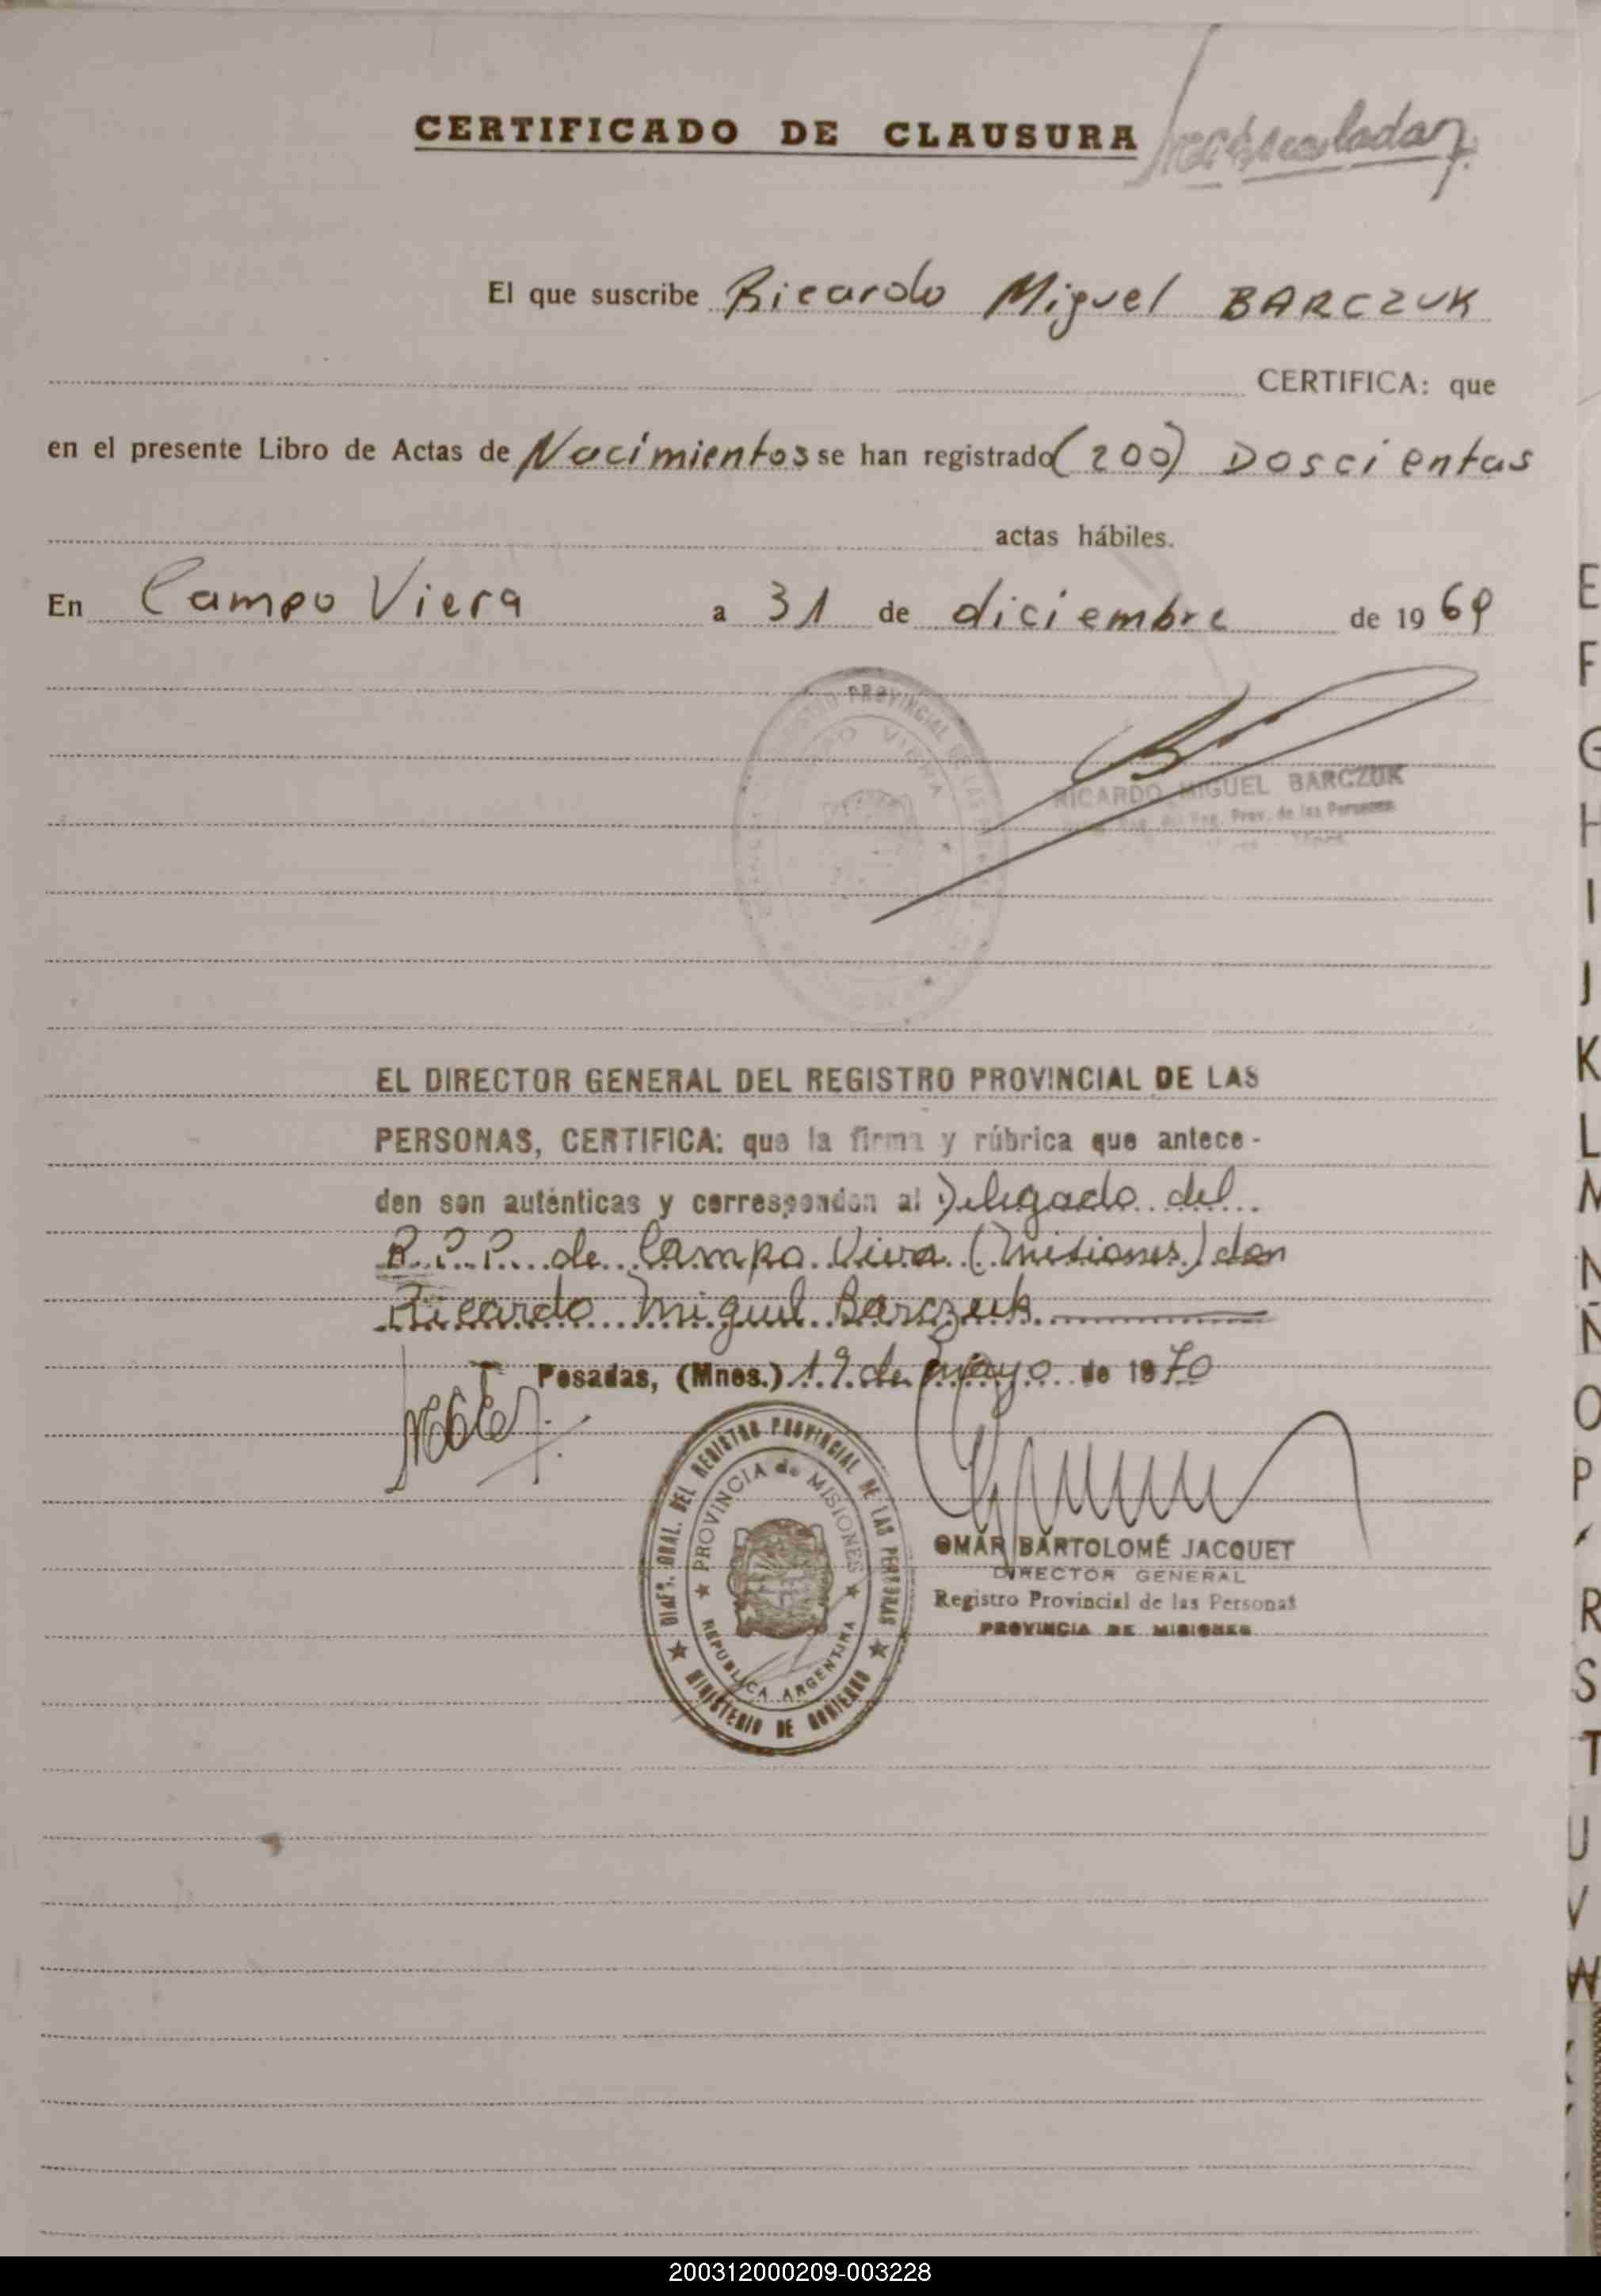 CERTIFICADO DE CLAUSURA
El que suscribe Ricardo Miguel BARCZUK
CERTIFICA: que
en el presente Libro de Actas de Nacimientos se han registrado (200) Doscientas
actas hábiles.
En Campo Viera a 31 de diciembre de 1969
PROVINCIAL DE LAS
VIERA
RICARDO MIGUEL BARCZUK
Reg. Prov. de las Personas
EL DIRECTOR GENERAL DEL REGISTRO PROVINCIAL DE LAS
PERSONAS, CERTIFICA: que la firma y rúbrica que antece-
den son auténticas y corresponden al Delegado del
R.P.P. de Campo Viera (Misiones) don
Ricardo Miguel Barczuk
Posadas, (Mnes.) 19 de mayo de 1970
GRAL. DEL REGISTRO PROVINCIAL DE LAS PERSONAS
PROVINCIA de MISIONES
REPUBLICA ARGENTINA
MINISTERIO DE GOBIERNO
OMAR BARTOLOMÉ JACQUET
DIRECTOR GENERAL
Registro Provincial de las Personas
PROVINCIA DE MISIONES
E
F
G
H
I
J
K
L
M
N
Ñ
O
P
R
S
T
U
V
W
200312000209-003228